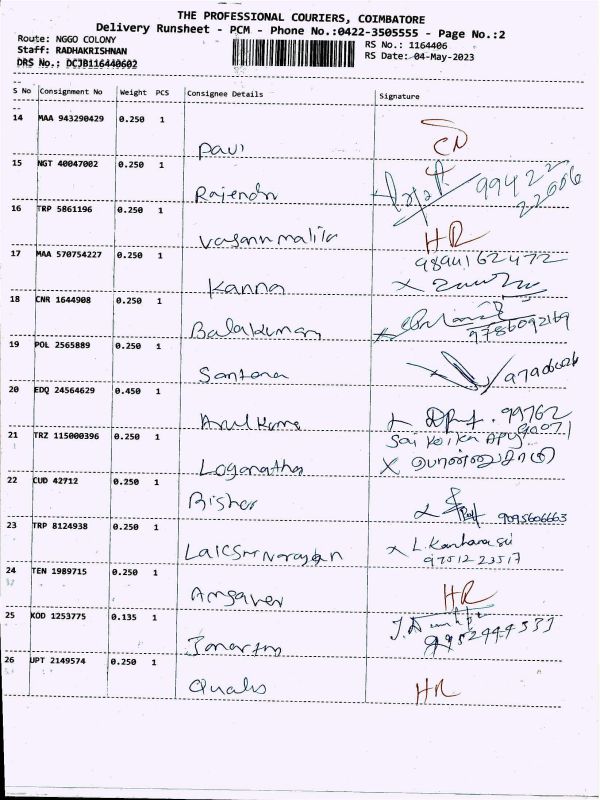 THE PROFESSIONAL COURIERS, COIMBATORE
Delivery Runsheet - PCM - Phone No.:0422-3505555 - Page No.:2
Route: NGGO COLONY
RS No.: 1164406
Staff: RADHAKRISHNAN
RS Date: 04-May-2023
DRS No.: DCJB116440602
S No Consignment No Weight PCS Consignee Details Signature
14 MAA 943290429 0.250 1
Paul
15 NGT 40047002 0.250 1
Rajendr 99422
16 TRP 5861196 0.250 1
HR
17 MAA 570754227 0.250 1 9894162472
Kanna
18 CNR 1644908 0.250 1
Balakuman 9786092169
19 POL 2565889 0.250 1
Santona
20 EDQ 24564629 0.450 1
Arul Kume 99762
90071
21 TRZ 115000396 0.250 1
Loganathan X பொன்னுசாமி
22 CUD 42712 0.250 1
Bishor 9095606663
23 TRP 8124938 0.250 1
L. Kantharasu
97512 23517
24 TEN 1989715 0.250 1
HR
25 KOD 1253775 0.135 1
26 UPT 2149574 0.250 1
Qualis HR